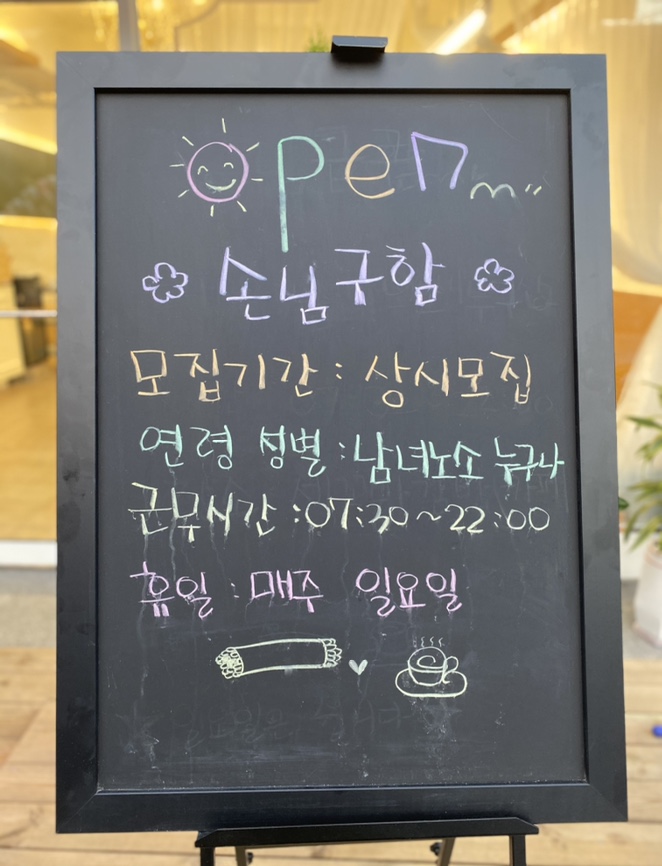 open
손님구함
모집기간 : 상시모집
연령 성별 : 남녀노소 누구나
근무시간 : 07:30~22:00
휴일 : 매주 일요일